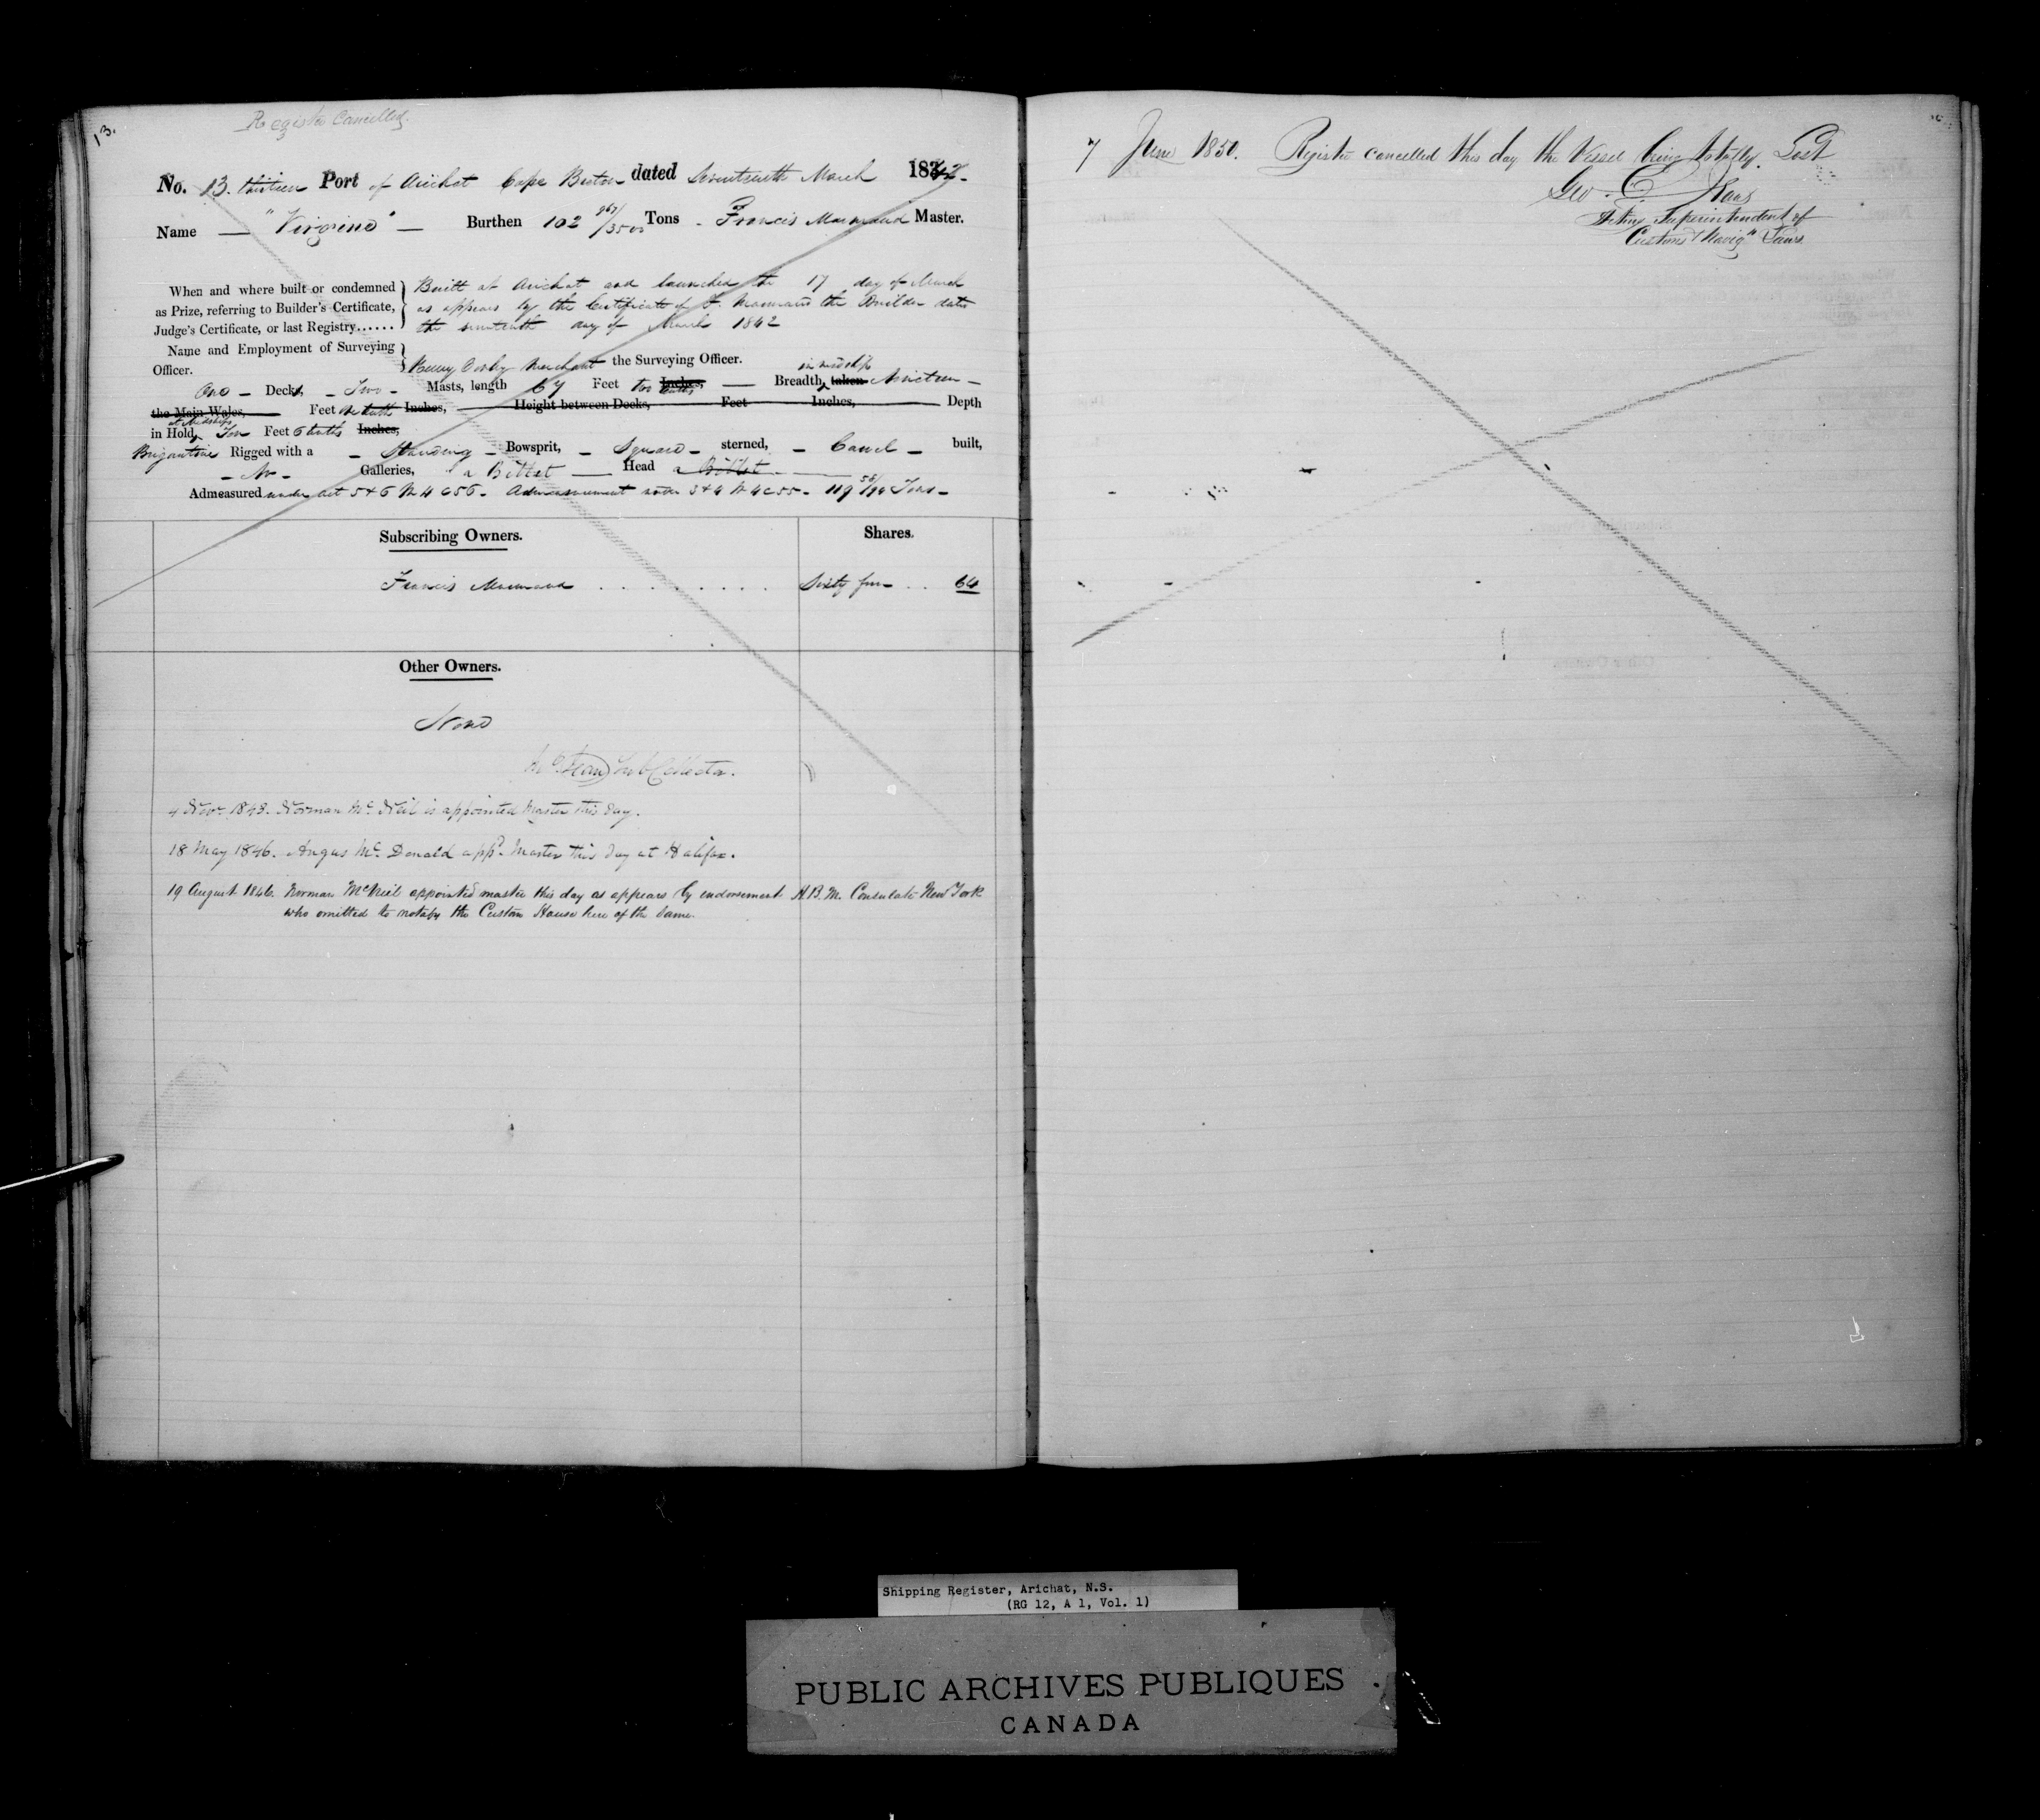 13.
Register Cancelled.
No. 13. thirteen Port of Arichat Cape Breton dated Seventeenth March 1842.
Name — "Virgino" — Burthen 102 967/3500 Tons. Francis Marmaud Master.
When and where built or condemned
as Prize, referring to Builder's Certificate,
Judge's Certificate, or last Registry......
Built at Arichat and launched the 17 day of March
as appears by the Certificate of F. Marmaud the Builder dated
the seventeenth day of March 1842
Name and Employment of Surveying
Officer.
Henry merchant the Surveying Officer.
One — Decks, — Two — Masts, length 67 Feet two tenths Inches, — Breadth in midships taken Nineteen —
the Main Wales, Feet tenths Inches, Height between Decks, Feet Inches, Depth
in Hold at Midships Ten Feet 6 tenths Inches,
Brigantine Rigged with a — Standing — Bowsprit, — Square — sterned, — Carvel — built,
— No — Galleries, a Billet — Head a Billet —
Admeasured under Act 5 & 6 W 4 C 56. Admeasurement under 3 & 4 W 4 C 55. 119 58/94 Tons —
Subscribing Owners.
Shares.
Francis Marmaud . . . . . . . Sixty four . . 64
Other Owners.
None
Sub Collector.
4 Novr. 1843. Norman Mc Neil is appointed Master this day.
18 May 1846. Angus Mc. Donald appd. Master this day at Halifax.
19 August 1846. Norman McNeil appointed master this day as appears by endorsement H.B.M. Consulate New York
who omitted to notify the Custom House here of the same.
7 June 1850. Register cancelled this day the Vessel being totally Lost
Geo. C.
Acting Superintendent of
Customs & Navign Laws.
Shipping Register, Arichat, N.S.
(RG 12, A 1, Vol. 1)
PUBLIC ARCHIVES PUBLIQUES
CANADA